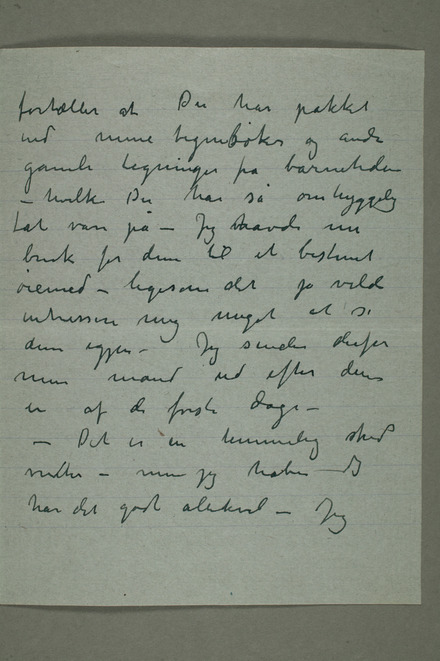 fortæller at Du har pakket
ned mine tegnebøker og andre
gamle tegninger fra barnetiden
– hvilke Du har så omhyggelig
tat vare på – Jeg havde nu
bruk for dem til et bestemt
øiemed – ligesom det jo vilde
interessere mig meget at se
dem igjen – Jeg sender derfor
min mand ud efter dem
en af de første dage –
– Det er en temmelig
– men jeg haber Du
har det godt alikevel – Jeg